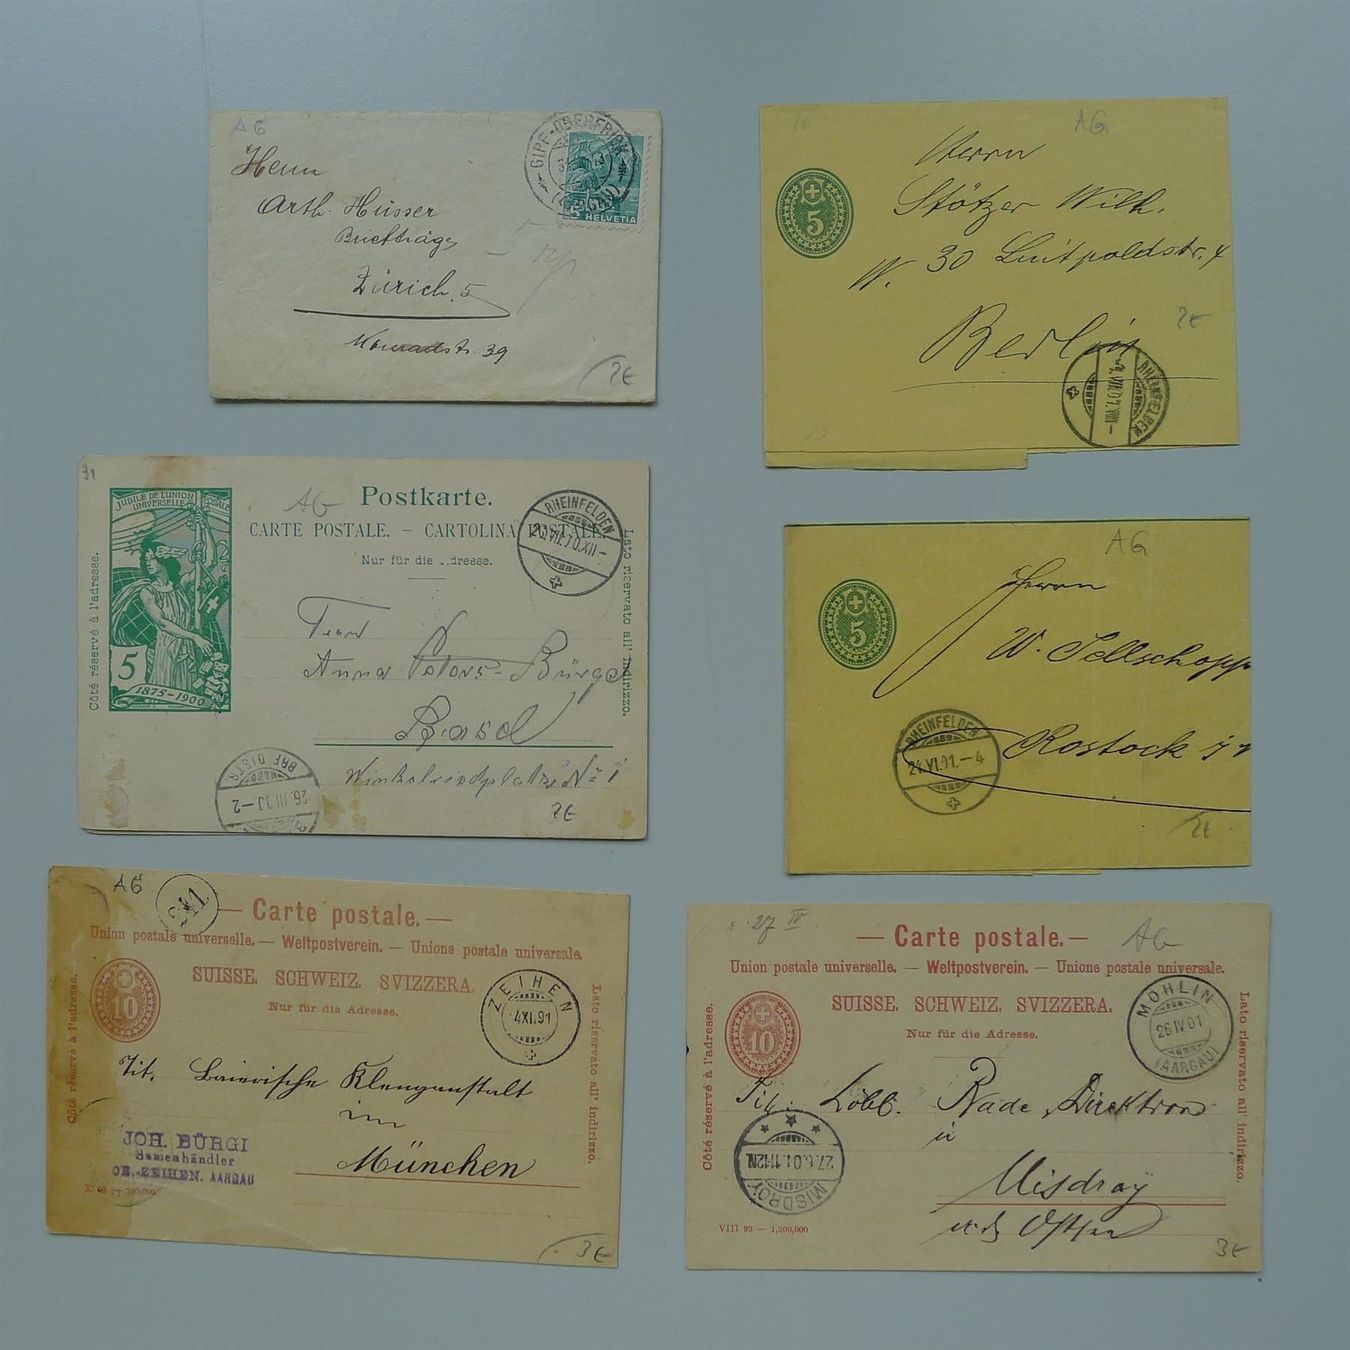 AG
GIPF-OBERFRICK
(AARGAU)
HELVETIA
5
Herrn
Arth. Hüsser
Briefträger
Zürich. 5
39
2€
AG
5
Herrn
Stötzer Wilh.
W. 30 Luitpoldstr. 4
Berlin
2€
RHEINFELDEN
31
AG
Postkarte.
CARTE POSTALE. – CARTOLINA POSTALE.
Nur für die Adresse.
JUBILÉ DE L'UNION
UNIVERSELLE POSTALE
5
1875-1900
Côté réservé à l'adresse.
Lato riservato all' indirizzo.
RHEINFELDEN
Anna Peters-Bürgi
Basel
Winkelriedplatz No 1
BRF. DISTR.
2€
AG
5
Herrn
W. Sellschopp
Rostock i/
RHEINFELDEN
24.VI.01.–4
2€
AG
— Carte postale. —
Union postale universelle. — Weltpostverein. — Unione postale universale.
SUISSE. SCHWEIZ. SVIZZERA.
Nur für die Adresse.
10
Côté réservé à l'adresse.
Lato riservato all' indirizzo.
ZEIHEN
4XI.91
Tit. Baierische Klenganstalt
in
München
JOH. BÜRGI
Samenhändler
OB.-ZEIHEN. AARGAU
3€
27 IV
AG
— Carte postale. —
Union postale universelle. — Weltpostverein. — Unione postale universale.
SUISSE. SCHWEIZ. SVIZZERA.
Nur für die Adresse.
10
Côté réservé à l'adresse.
Lato riservato all' indirizzo.
MÖHLIN
26 IV 01
(AARGAU)
Tit. Löbl. Bade Direktion
in
Misdroy
MISDROY
VIII 99 — 1,200,000
3€